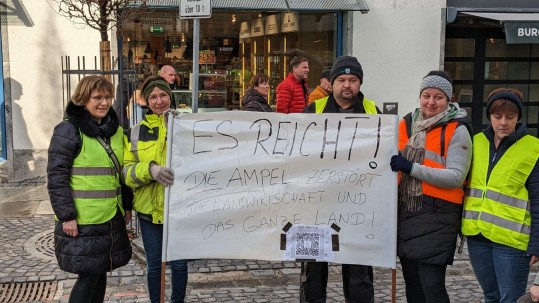 BURG
ES REICHT!
DIE AMPEL ZERSTÖRT
DIE LANDWIRTSCHAFT UND
DAS GANZE LAND!